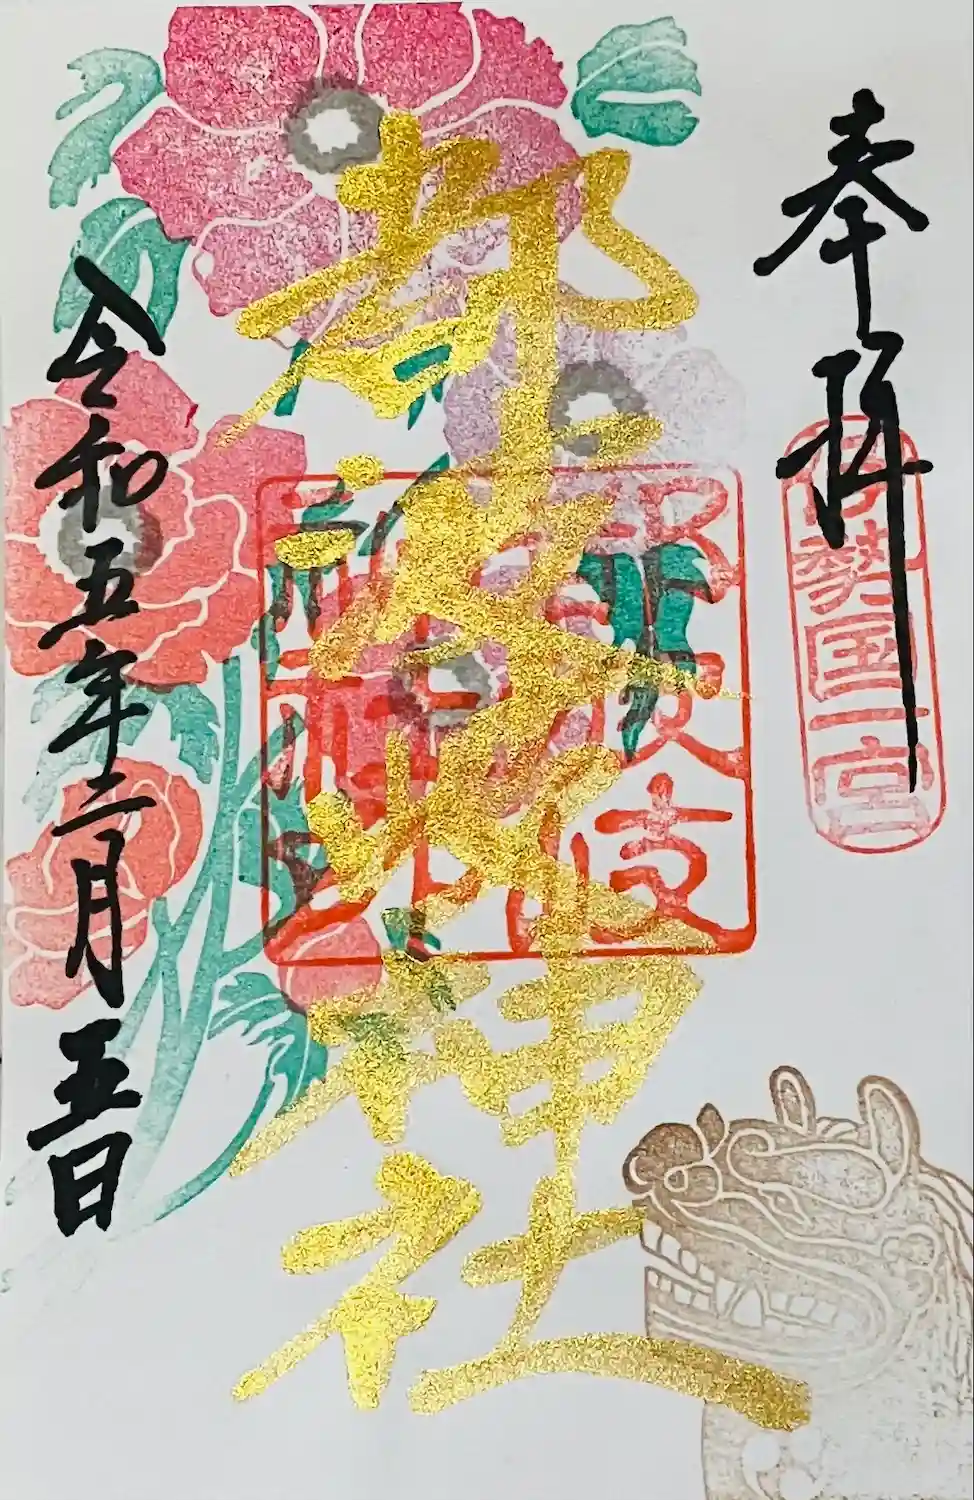 奉拝
伊勢国一宮
都波岐神社
都波岐
神社印
令和五年二月五日